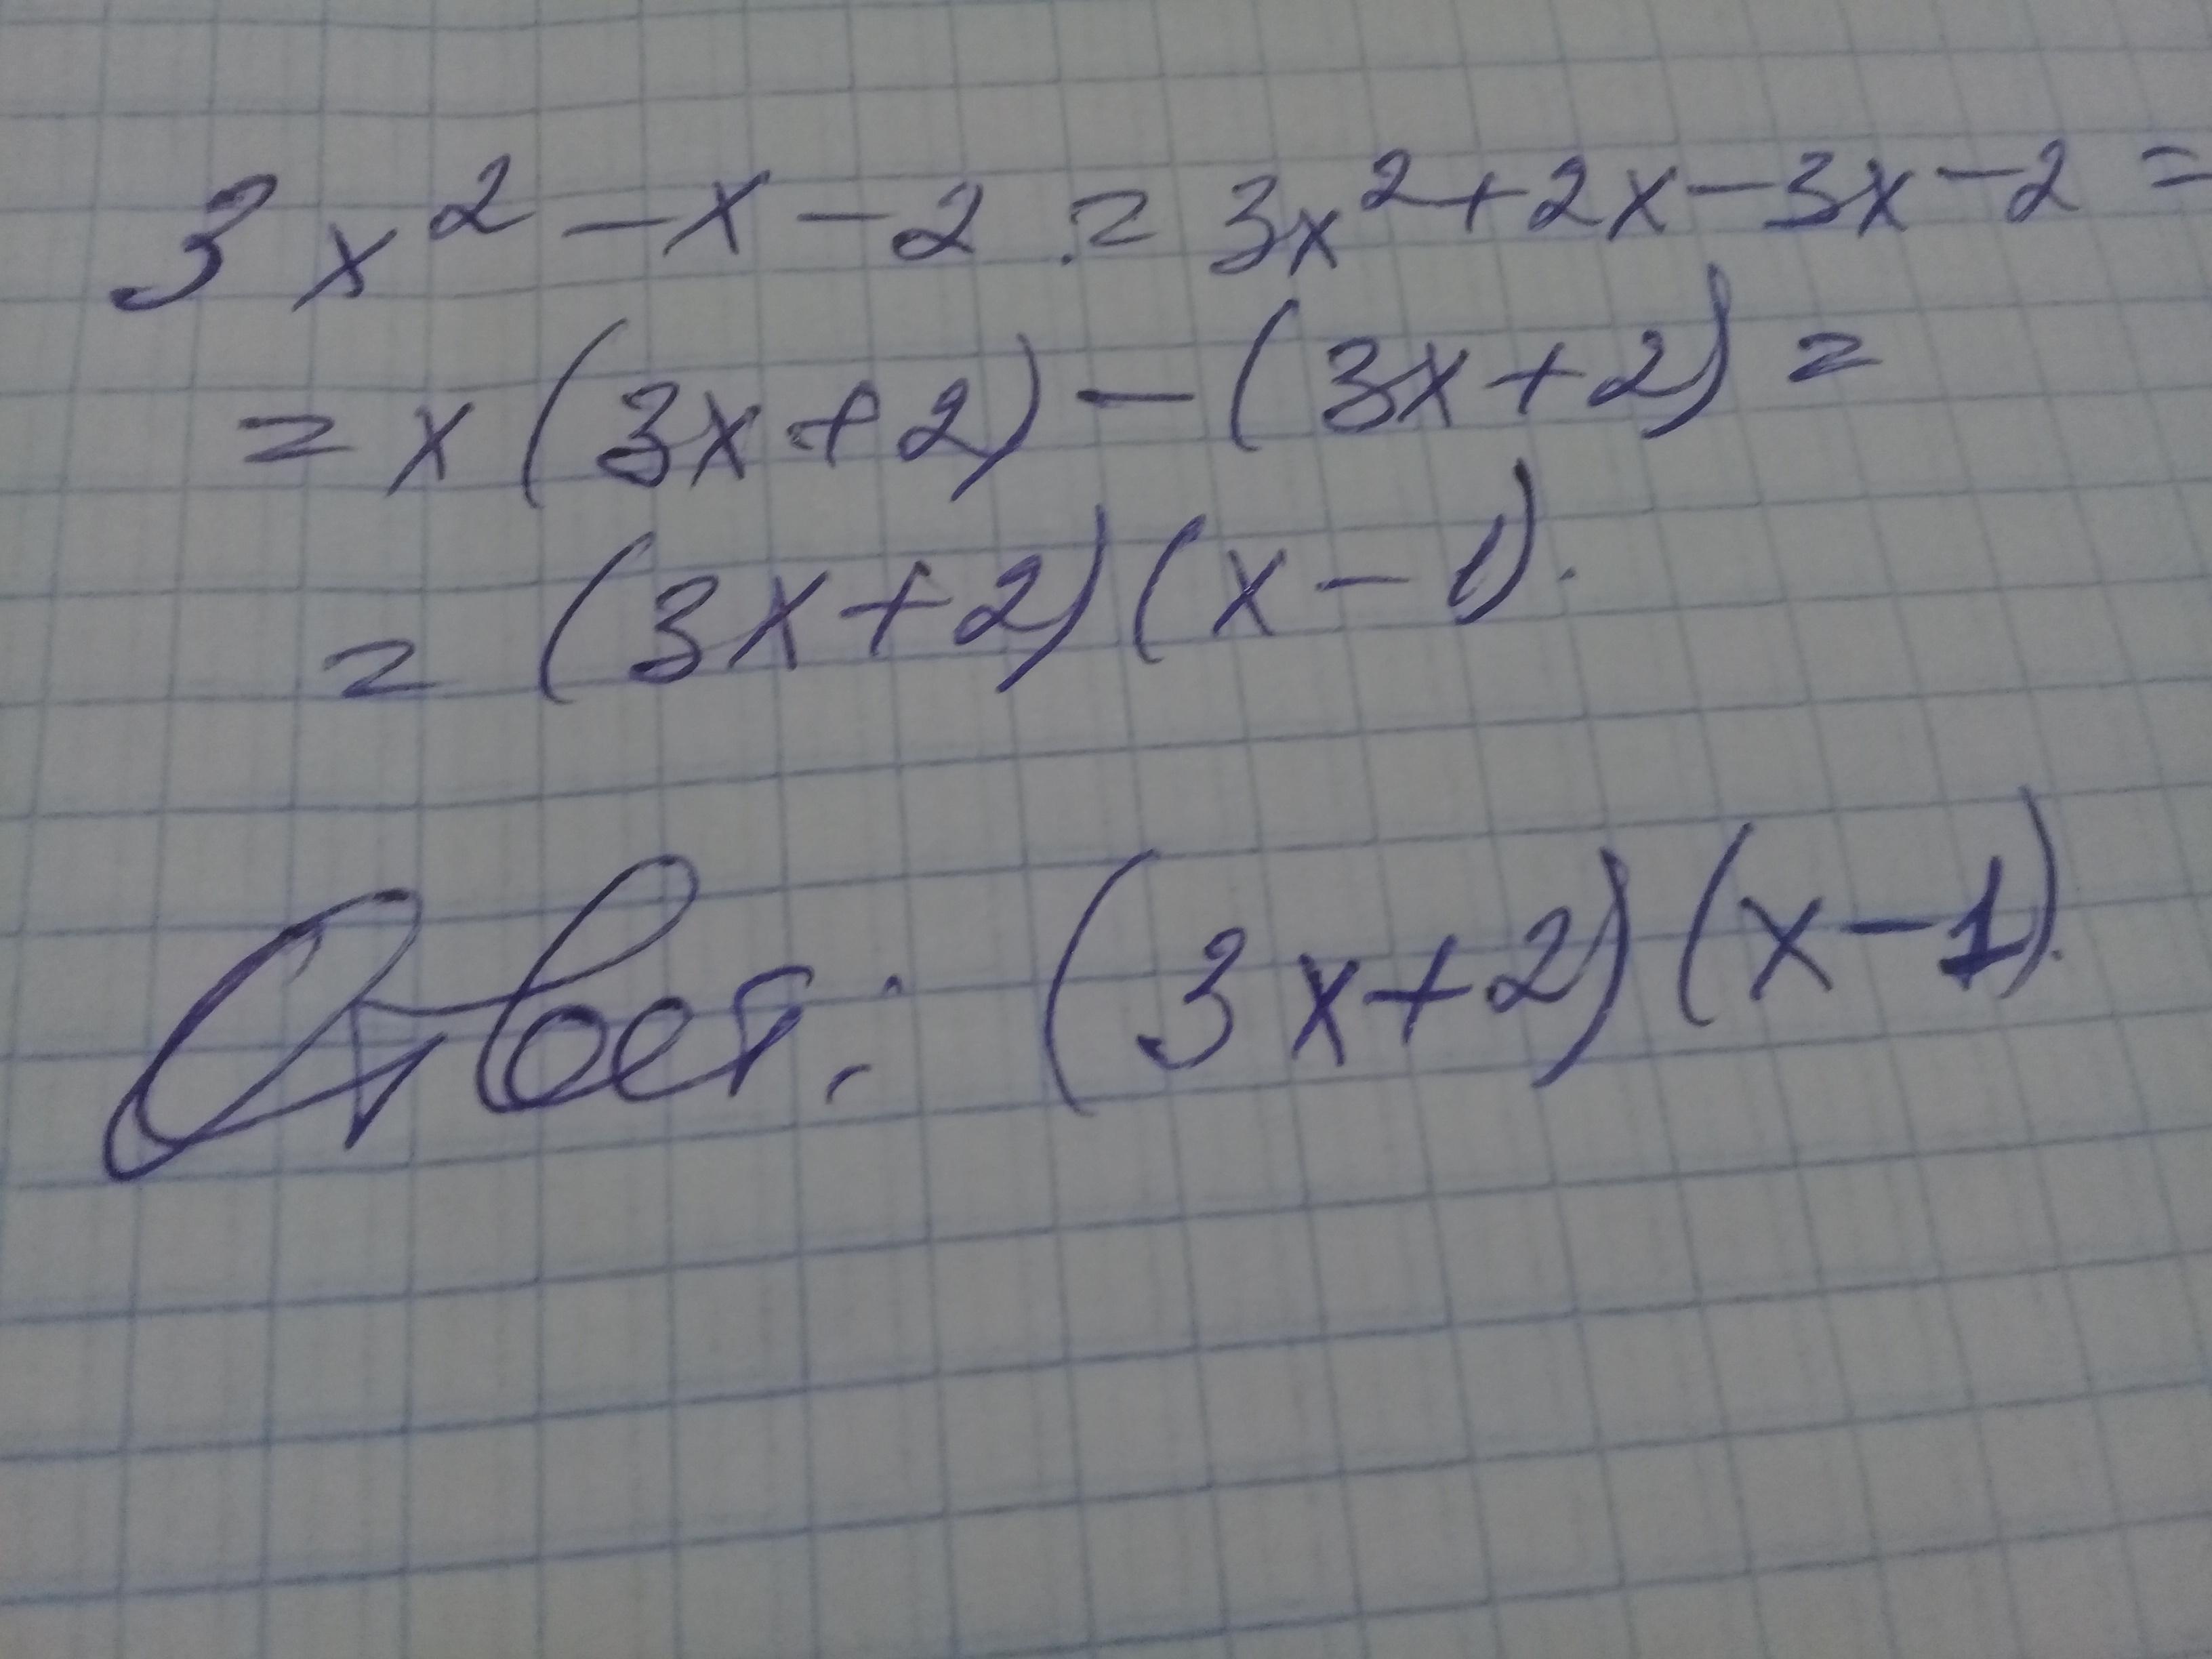 3x² - x - 2 = 3x² + 2x - 3x - 2 =
= x(3x+2) - (3x+2) =
= (3x+2)(x-1).
Ответ: (3x+2)(x-1).